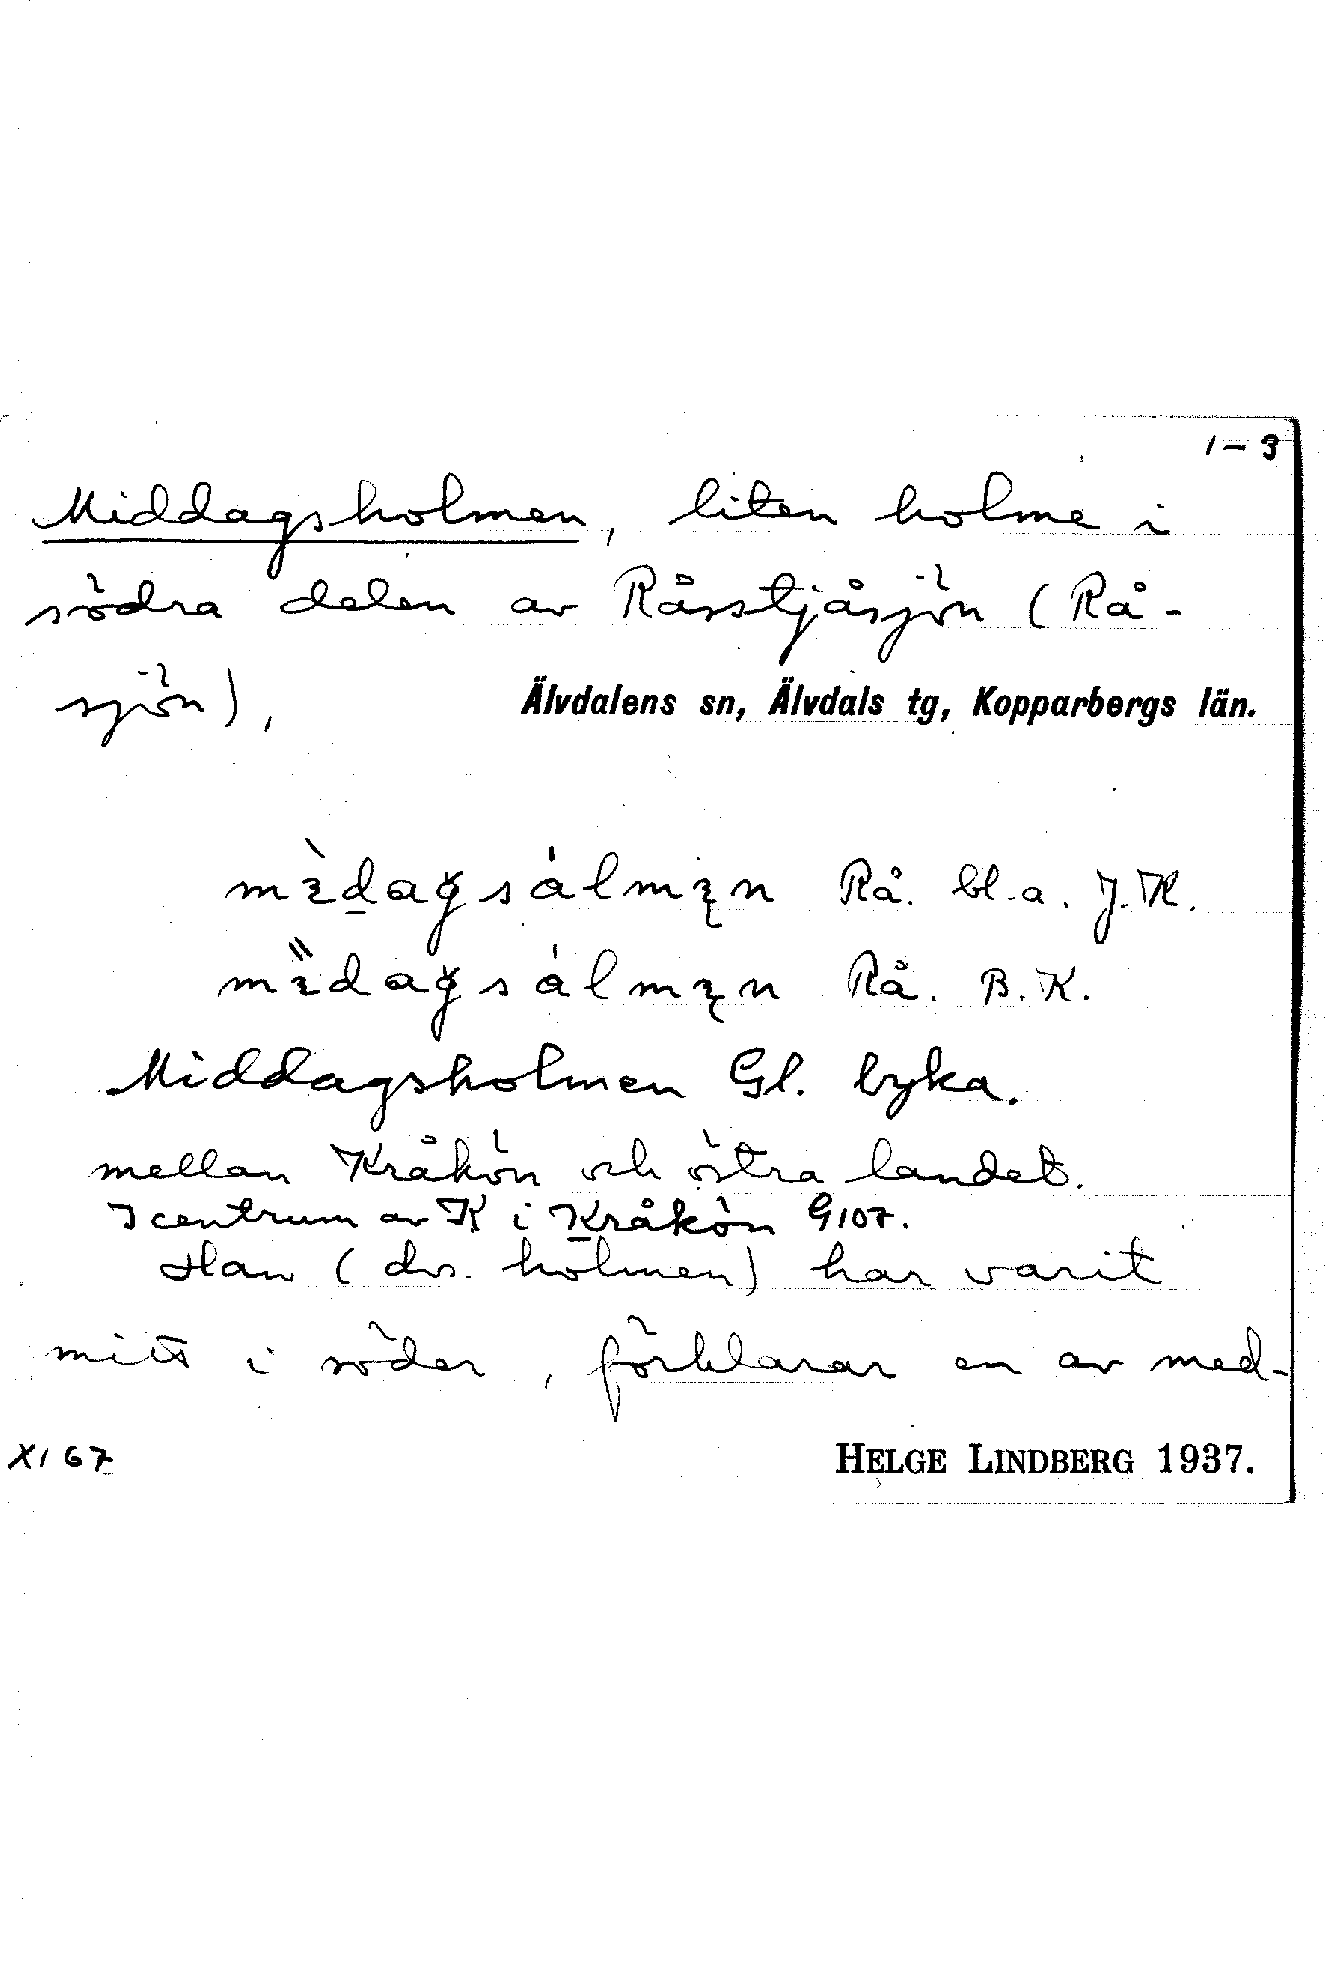 1-3
Middagsholmen, liten holme i
södra delen av Råsstjåsjön (Rå-
sjön),
Älvdalens sn, Älvdals tg, Kopparbergs län.
Rå. bl.a. J.K.
Rå. B.K.
Middagsholmen Gl. byka.
mellan Kråkön och östra landet.
I centrum av K i Kråkön G107.
Han (dvs. holmen) har varit
mitt i söder, förklarar en av med-
XI 67
HELGE LINDBERG 1937.